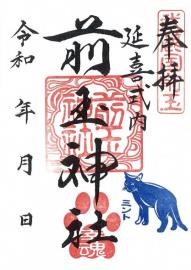 奉拝
延喜式内
前玉神社
令和 年 月 日
ミント
魂